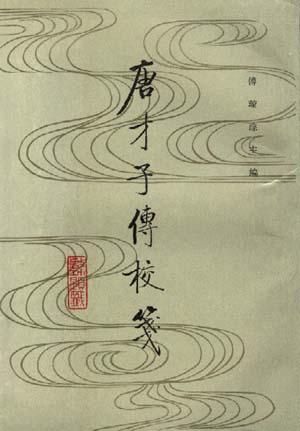 唐才子傳校箋
傅璇琮主編